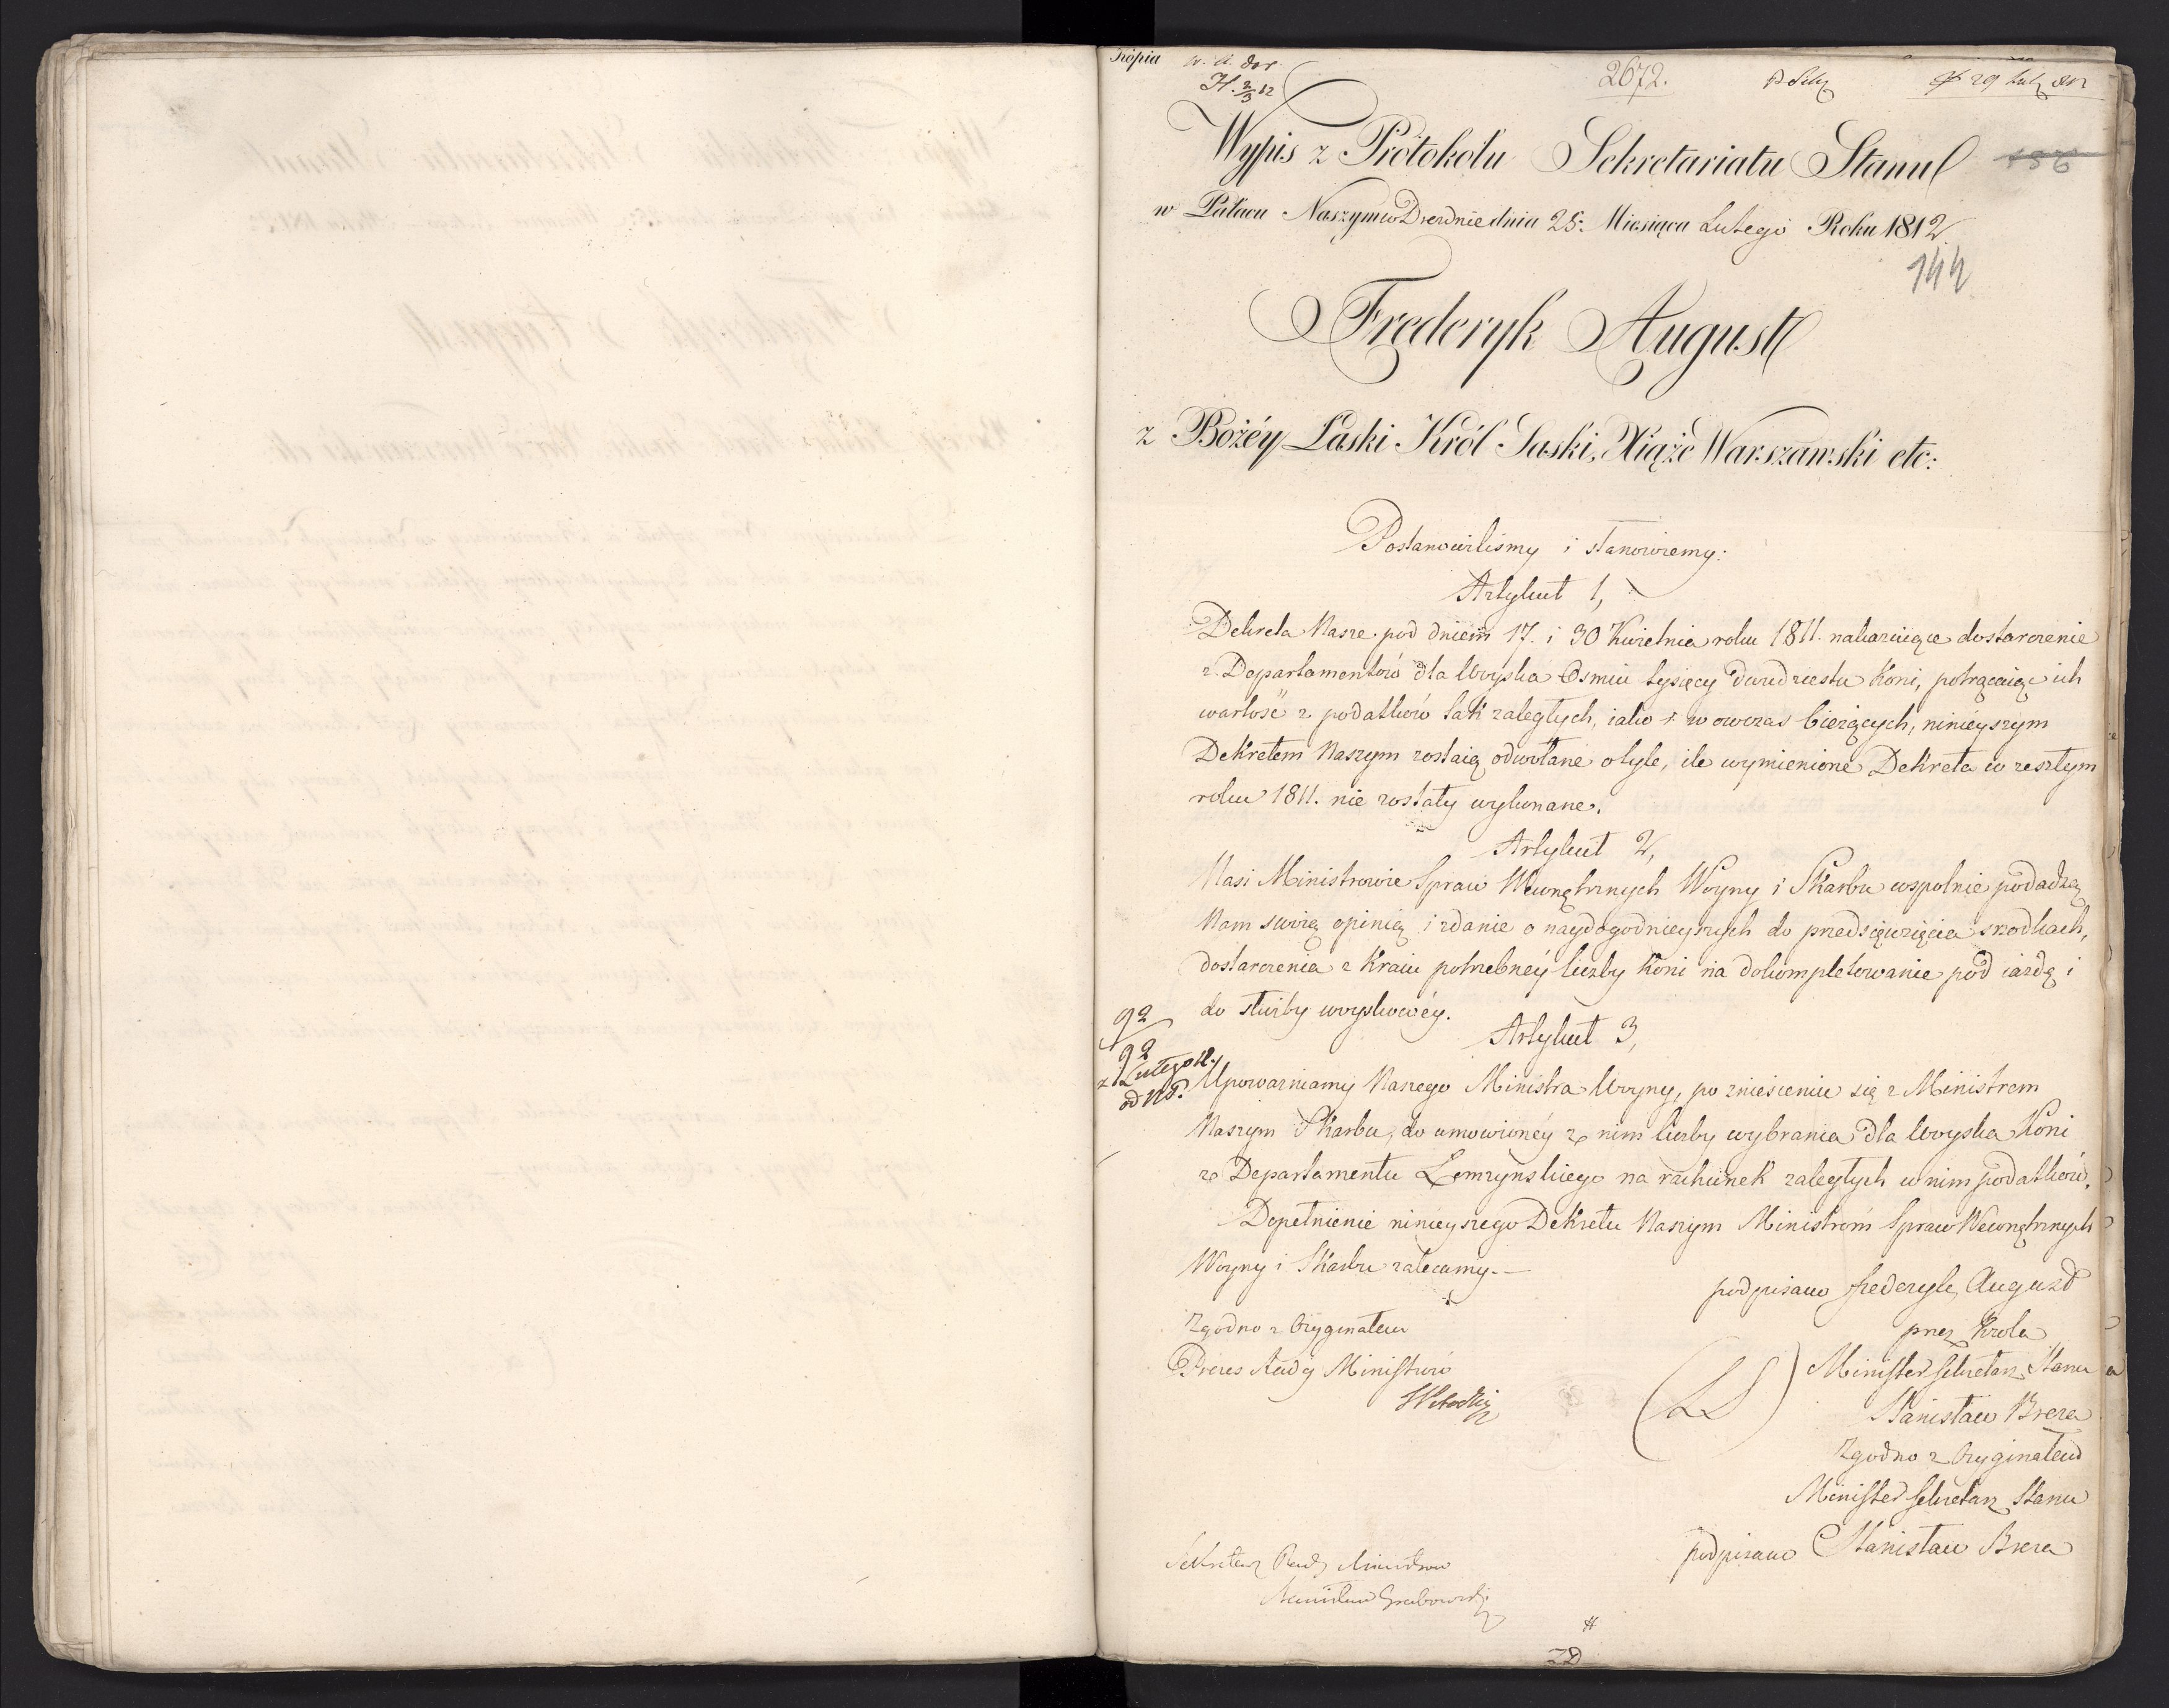 Kopia
2672.
29 Lut. 812
Wypis z Protokołu Sekretariatu Stanu
w Pałacu Naszym w Dreźnie dnia 28. Miesiąca Lutego Roku 1812
144
Frederyk August
z Bożéy Łaski Król Saski, Xiąże Warszawski etc:
Postanowiliśmy i stanowiemy:
Artykuł 1,
Dekreta Nasze pod dniem 17. i 30 Kwietnia roku 1811. nakazuiące dostarczenie
z Departamentów dla Woyska Osmiu tysięcy dwudziestu Koni, potrącaiąc ich
wartość z podatków tak zaległych, iako i wowczas bieżących, ninieyszym
Dekretem Naszym zostaią odwołane otyle, ile wymienione Dekreta w zeszłym
roku 1811. nie zostały wykonane.
Artykuł 2,
Nasi Ministrowie Spraw Wewnętrznych Woyny i Skarbu wspolnie podadzą
Nam swoię opinią i zdanie o naydogodnieyszych do przedsięwzięcia srzodkach,
dostarczenia z Kraiu potrzebnéy liczby Koni na dokompletowanie pod iazdę i
do służby woyskowéy.
Artykuł 3,
92
92
z Lutego 12.
Upoważniamy Naszego Ministra Woyny, po zniesieniu się z Ministrem
Naszym Skarbu, do umowionéy z nim liczby wybrania dla Woyska Koni
z Departamentu Łomżynskiego na rachunek zaległych w nim podatków.
Dopełnienie ninieyszego Dekretu Naszym Ministrom Spraw Wewnętrznych
Woyny i Skarbu zalecamy.—
podpisano Frederyk August
przez Krola
Minister Sekretarz Stanu
Stanisław Breza
(LS)
Zgodno z Oryginałem
Minister Sekretarz Stanu
podpisano Stanisław Breza
Zgodno z Oryginałem
Prezes Rady Ministrów
Sekretarz Rady Ministrow
Stanisław Grabowski